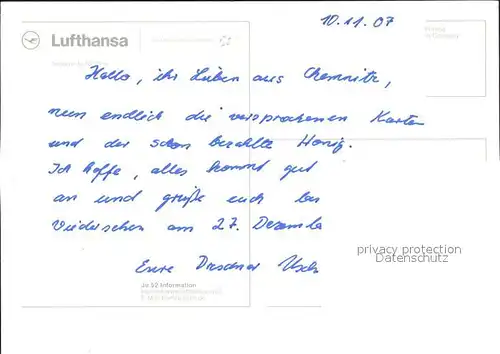 10.11.07
Lufthansa
Hallo, ihr Lieben aus Chemnitz,
nun endlich die versprochenen Karten
und der schon bezahlte Honig.
Ich hoffe, alles kommt gut
an und grüße euch bis
Wiedersehen am 27. Dezembe
Eure Dresdner
privacy protection
Datenschutz
Ju 52 Information